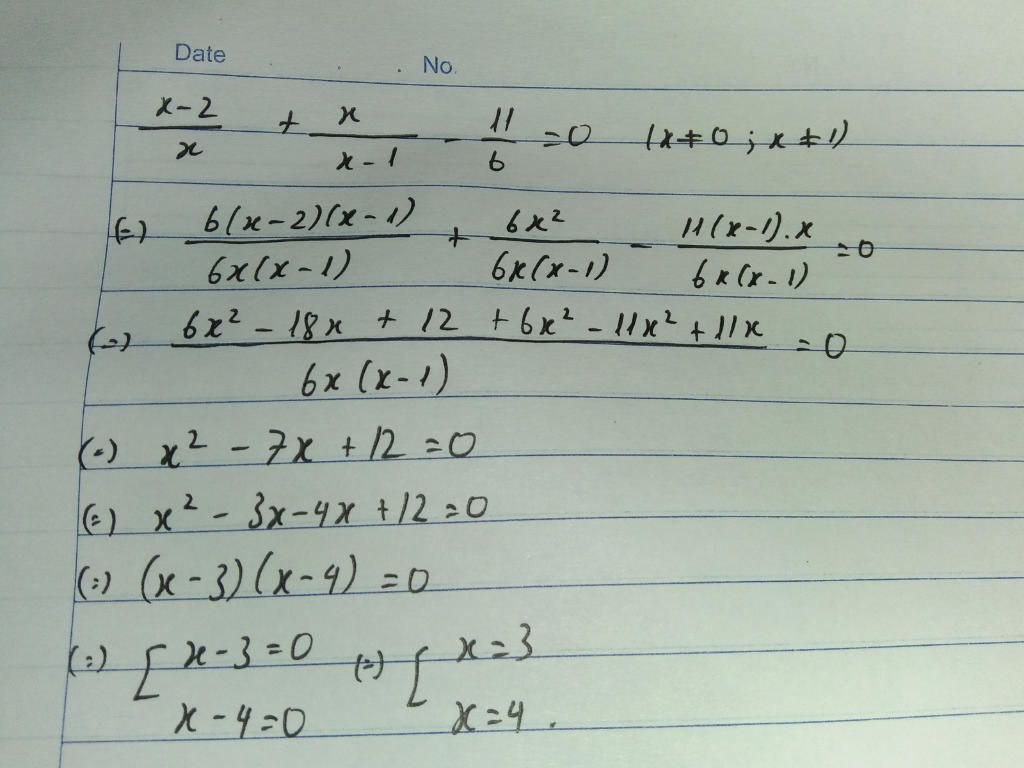 Date No.
\frac{x-2}{x} + \frac{x}{x-1} - \frac{11}{6} = 0 (x ≠ 0 ; x ≠ 1)
(=) \frac{6(x-2)(x-1)}{6x(x-1)} + \frac{6x^2}{6x(x-1)} - \frac{11(x-1).x}{6x(x-1)} = 0
(=) \frac{6x^2 - 18x + 12 + 6x^2 - 11x^2 + 11x}{6x(x-1)} = 0
(=) x^2 - 7x + 12 = 0
(=) x^2 - 3x - 4x + 12 = 0
(=) (x-3)(x-4) = 0
(=) [ x-3=0 (=) [ x=3
x-4=0 x=4 .